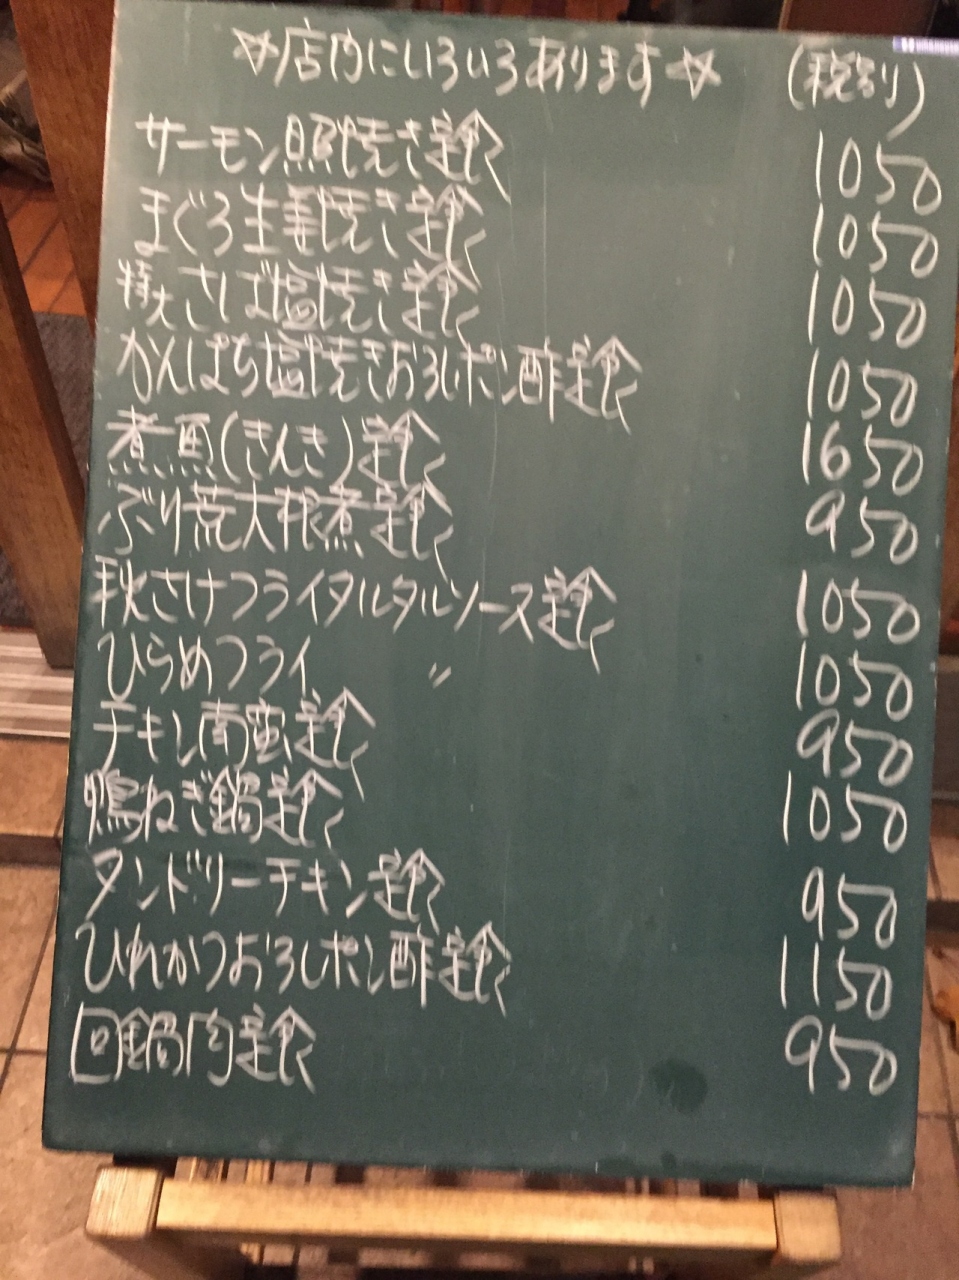 ☆店内にいろいろあります☆ (税別)
サーモン照焼き定食 1050
まぐろ生姜焼き定食 1050
特大さば塩焼き定食 1050
かんぱち塩焼きおろしポン酢定食 1050
煮魚(きんき)定食 1650
ぶり荒大根煮定食 950
秋さけフライタルタルソース定食 1050
ひらめフライ 〃 1050
チキン南蛮定食 950
鴨ねぎ鍋定食 1050
タンドリーチキン定食 950
ひれかつおろしポン酢定食 1150
回鍋肉定食 950